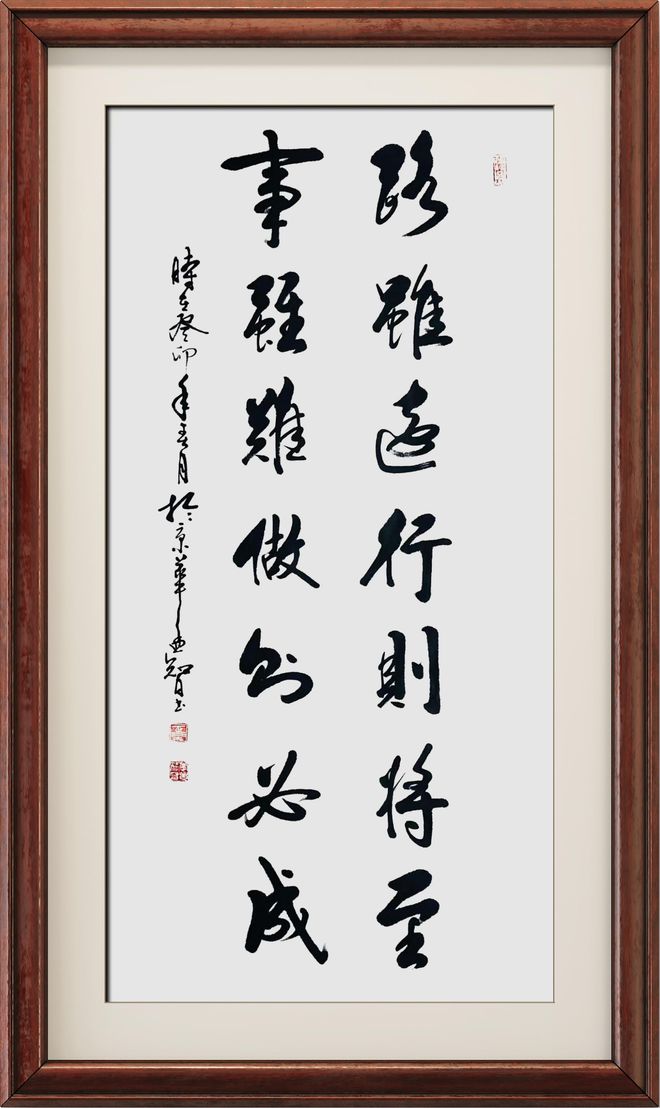 路雖遠行則將至
事雖難做則必成
時在癸卯年五月於京華智書